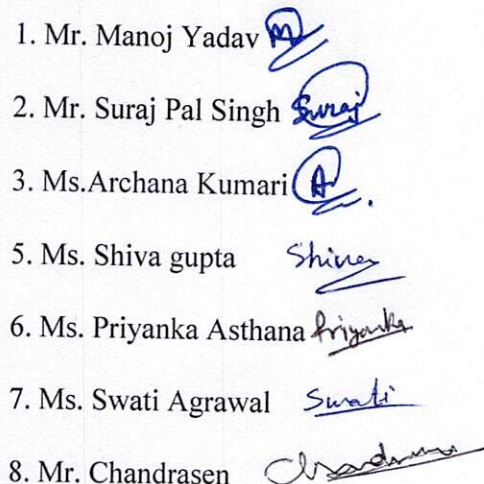 1. Mr. Manoj Yadav M
2. Mr. Suraj Pal Singh Suraj
3. Ms.Archana Kumari A
5. Ms. Shiva gupta Shiva
6. Ms. Priyanka Asthana Priyanka
7. Ms. Swati Agrawal Swati
8. Mr. Chandrasen